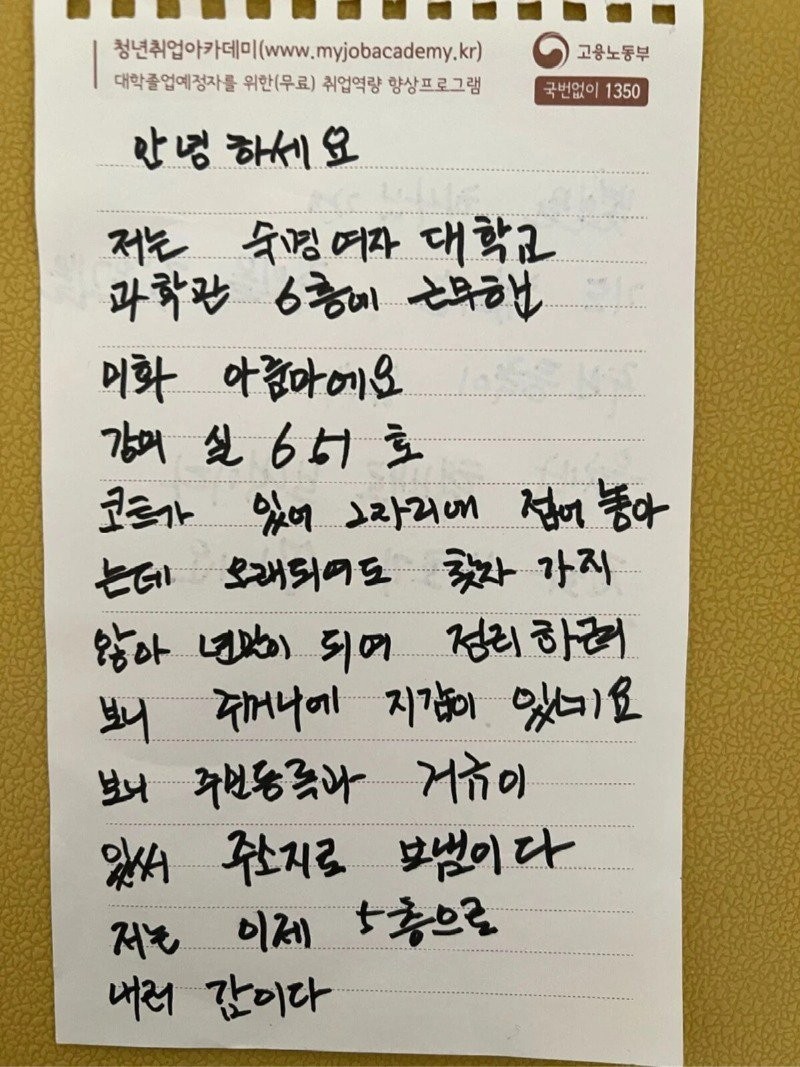 청년취업아카데미(www.myjobacademy.kr)
대학졸업예정자를 위한(무료) 취업역량 향상프로그램
고용노동부
국번없이 1350
안녕하세요
저는 숙명여자 대학교
과학관 6층에 근무합
미화 아줌마에요
강의 실 651 호
코트가 있어 그자리에 접어 놓아
는데 오래되여도 찾자 가지
않아 년말이 되여 정리 하려
보니 주머니에 지갑이 있네요
보니 주민등록과 거규이
있써 주소지로 보냄이다
저는 이제 5층으로
내려 감이다